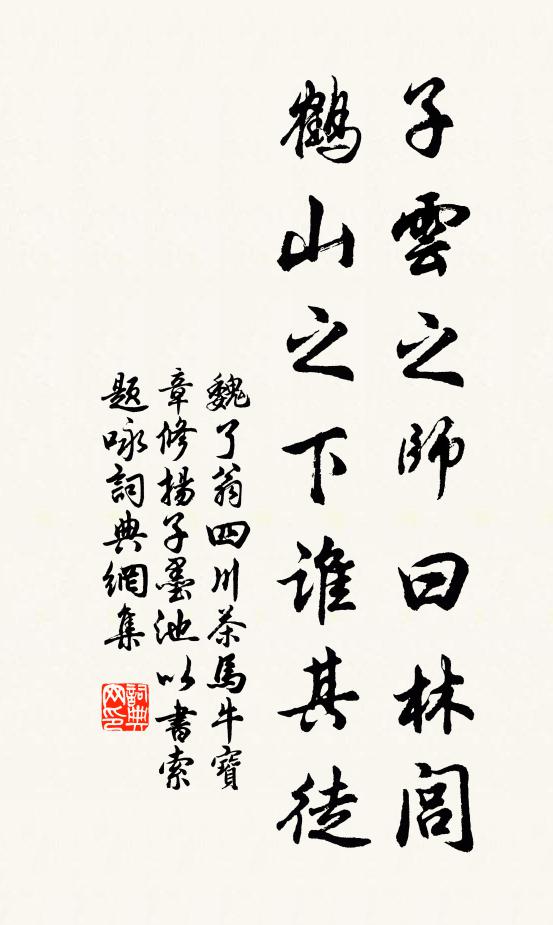 子雲之師曰林閭
鶴山之下誰其徒
魏了翁四川茶馬牛寶
章修揚子墨池以書索
題咏詞典網集
詞典
网印